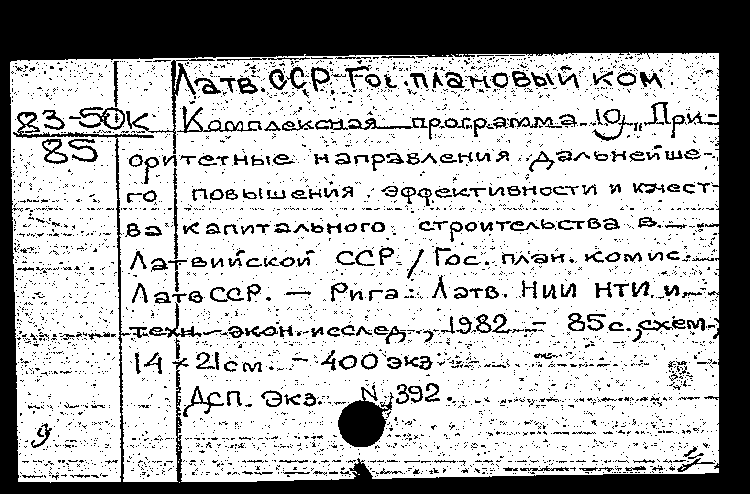 Латв. ССР. Гос. плановый ком
83-50К
85
Комплексная программа 10 „При-
оритетные направления дальнейше-
го повышения эффективности и качест-
ва капитального строительства в
Латвийской ССР. / Гос. план. комис.
Латв ССР. — Рига: Латв. НИИ НТИ и
техн.-экон. исслед., 1982 - 85 с., схем.;
14 × 21 см. - 400 экз
ДСП. Экз. N 392.